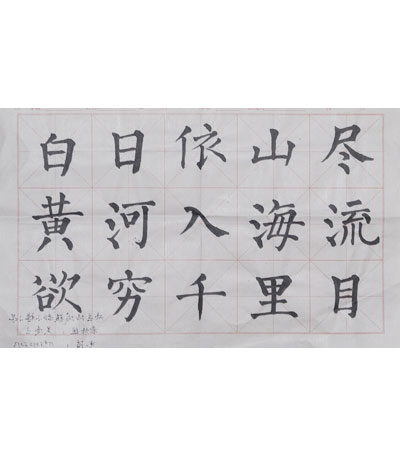 白日依山尽
黄河入海流
欲穷千里目